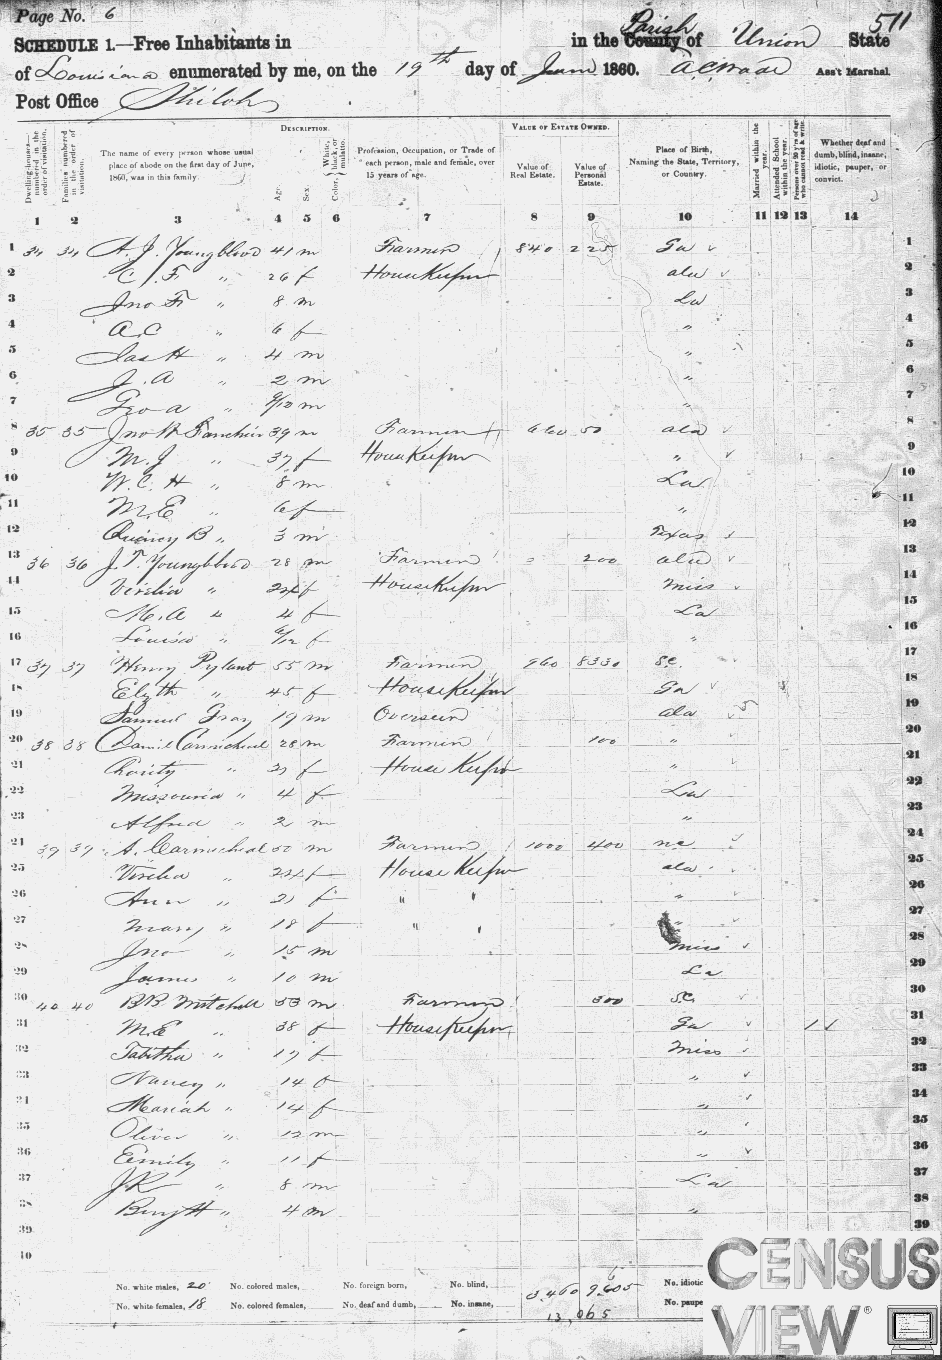 Page No. 6
511
SCHEDULE 1.—Free Inhabitants in in the County Parish of Union State
of Louisiana enumerated by me, on the 19th day of June 1860. A.C. Wade Ass't Marshal.
Post Office Shiloh
Dwelling-houses—numbered in the order of visitation.
Families numbered in the order of visitation.
The name of every person whose usual place of abode on the first day of June, 1860, was in this family.
DESCRIPTION.
Age.
Sex.
Color, White, black, or mulatto.
Profession, Occupation, or Trade of each person, male and female, over 15 years of age.
VALUE OF ESTATE OWNED.
Value of Real Estate.
Value of Personal Estate.
Place of Birth, Naming the State, Territory, or Country.
Married within the year.
Attended School within the year.
Persons over 20 y'rs of age who cannot read & write.
Whether deaf and dumb, blind, insane, idiotic, pauper, or convict.
1 2 3 4 5 6 7 8 9 10 11 12 13 14
1 34 34 A. J. Youngblood 41 m Farmer 840 225 Ga 1
2 C. F. " 26 f HouseKeeper ala 2
3 Jno F " 8 m La 3
4 A C " 6 f " 4
5 Jas H " 4 m " 5
6 J. A " 2 m " 6
7 Geo a " 9/12 m " 7
8 35 35 Jno W 39 m Farmer 660 50 ala 8
9 M. J " 37 f HouseKeeper " 9
10 W. C. H " 8 m La 10
11 M. E " 6 f " 11
12 Quincy B " 3 m Texas 12
13 36 36 J. T. Youngblood 28 m Farmer 200 ala 13
14 " 24 f HouseKeeper Miss 14
15 M. A " 4 f La 15
16 Louisa " f " 16
17 37 37 Henry Pylant 55 m Farmer 960 8330 S.C. 17
18 " 45 f HouseKeeper Ga 18
19 Samuel Gray 19 m Overseer ala 19
20 38 38 Daniel Carmichael 28 m Farmer 100 " 20
21 Charity " 21 f House Keeper " 21
22 Missouria " 4 f La 22
23 Alfred " 2 m " 23
24 39 39 A. Carmichael 50 m Farmer 1000 400 nc 24
25 " 24 f House Keeper ala 25
26 Ann " 21 f " " " 26
27 Mary " 18 f " " 27
28 Jno " 15 m Miss 28
29 James " 10 m La 29
30 40 40 B.B. Mitchell m Farmer 300 S.C. 30
31 M.E " 38 f HouseKeeper Ga 1 31
32 Tabitha " 17 f Miss 32
33 Nancy " 14 f " 33
34 Mariah " 14 f " 34
35 Oliver " 12 m " 35
36 Emily " 11 f " 36
37 J.K " 8 m La 37
38 " 4 m " 38
39 39
40
No. white males, 20 No. colored males, No. foreign born, No. blind, 3,460 9,605 No. idiotic
No. white females, 18 No. colored females, No. deaf and dumb, No. insane, 13,065 No. paupe
CENSUS
VIEW®